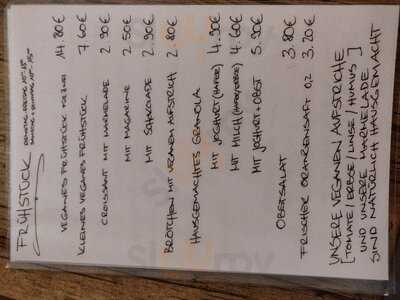 FRÜHSTÜCK
VEGANES FRÜHSTÜCK FÜR ZWEI 14.80€
KLEINES VEGANES FRÜHSTÜCK 7.60€
CROISSANT MIT MARMELADE 2.90€
MIT MAGARINE 2.50€
MIT SCHOKOLADE 2.90€
BRÖTCHEN MIT VEGANEM AUFSTRICH 2.80€
HAUSGEMACHTES GRANOLA
MIT JOGHURT (HAFER) 4.90€
MIT MILCH 4.60€
MIT JOGHURT + OBST 5.90€
OBSTSALAT 3.80€
FRISCHER ORANGENSAFT 0,2 3.20€
UNSERE VEGANEN AUFSTRICHE
[TOMATE / ERBSE / LINSE / HUMUS]
UND UNSERE MARMELADE
SIND NATÜRLICH HAUSGEMACHT